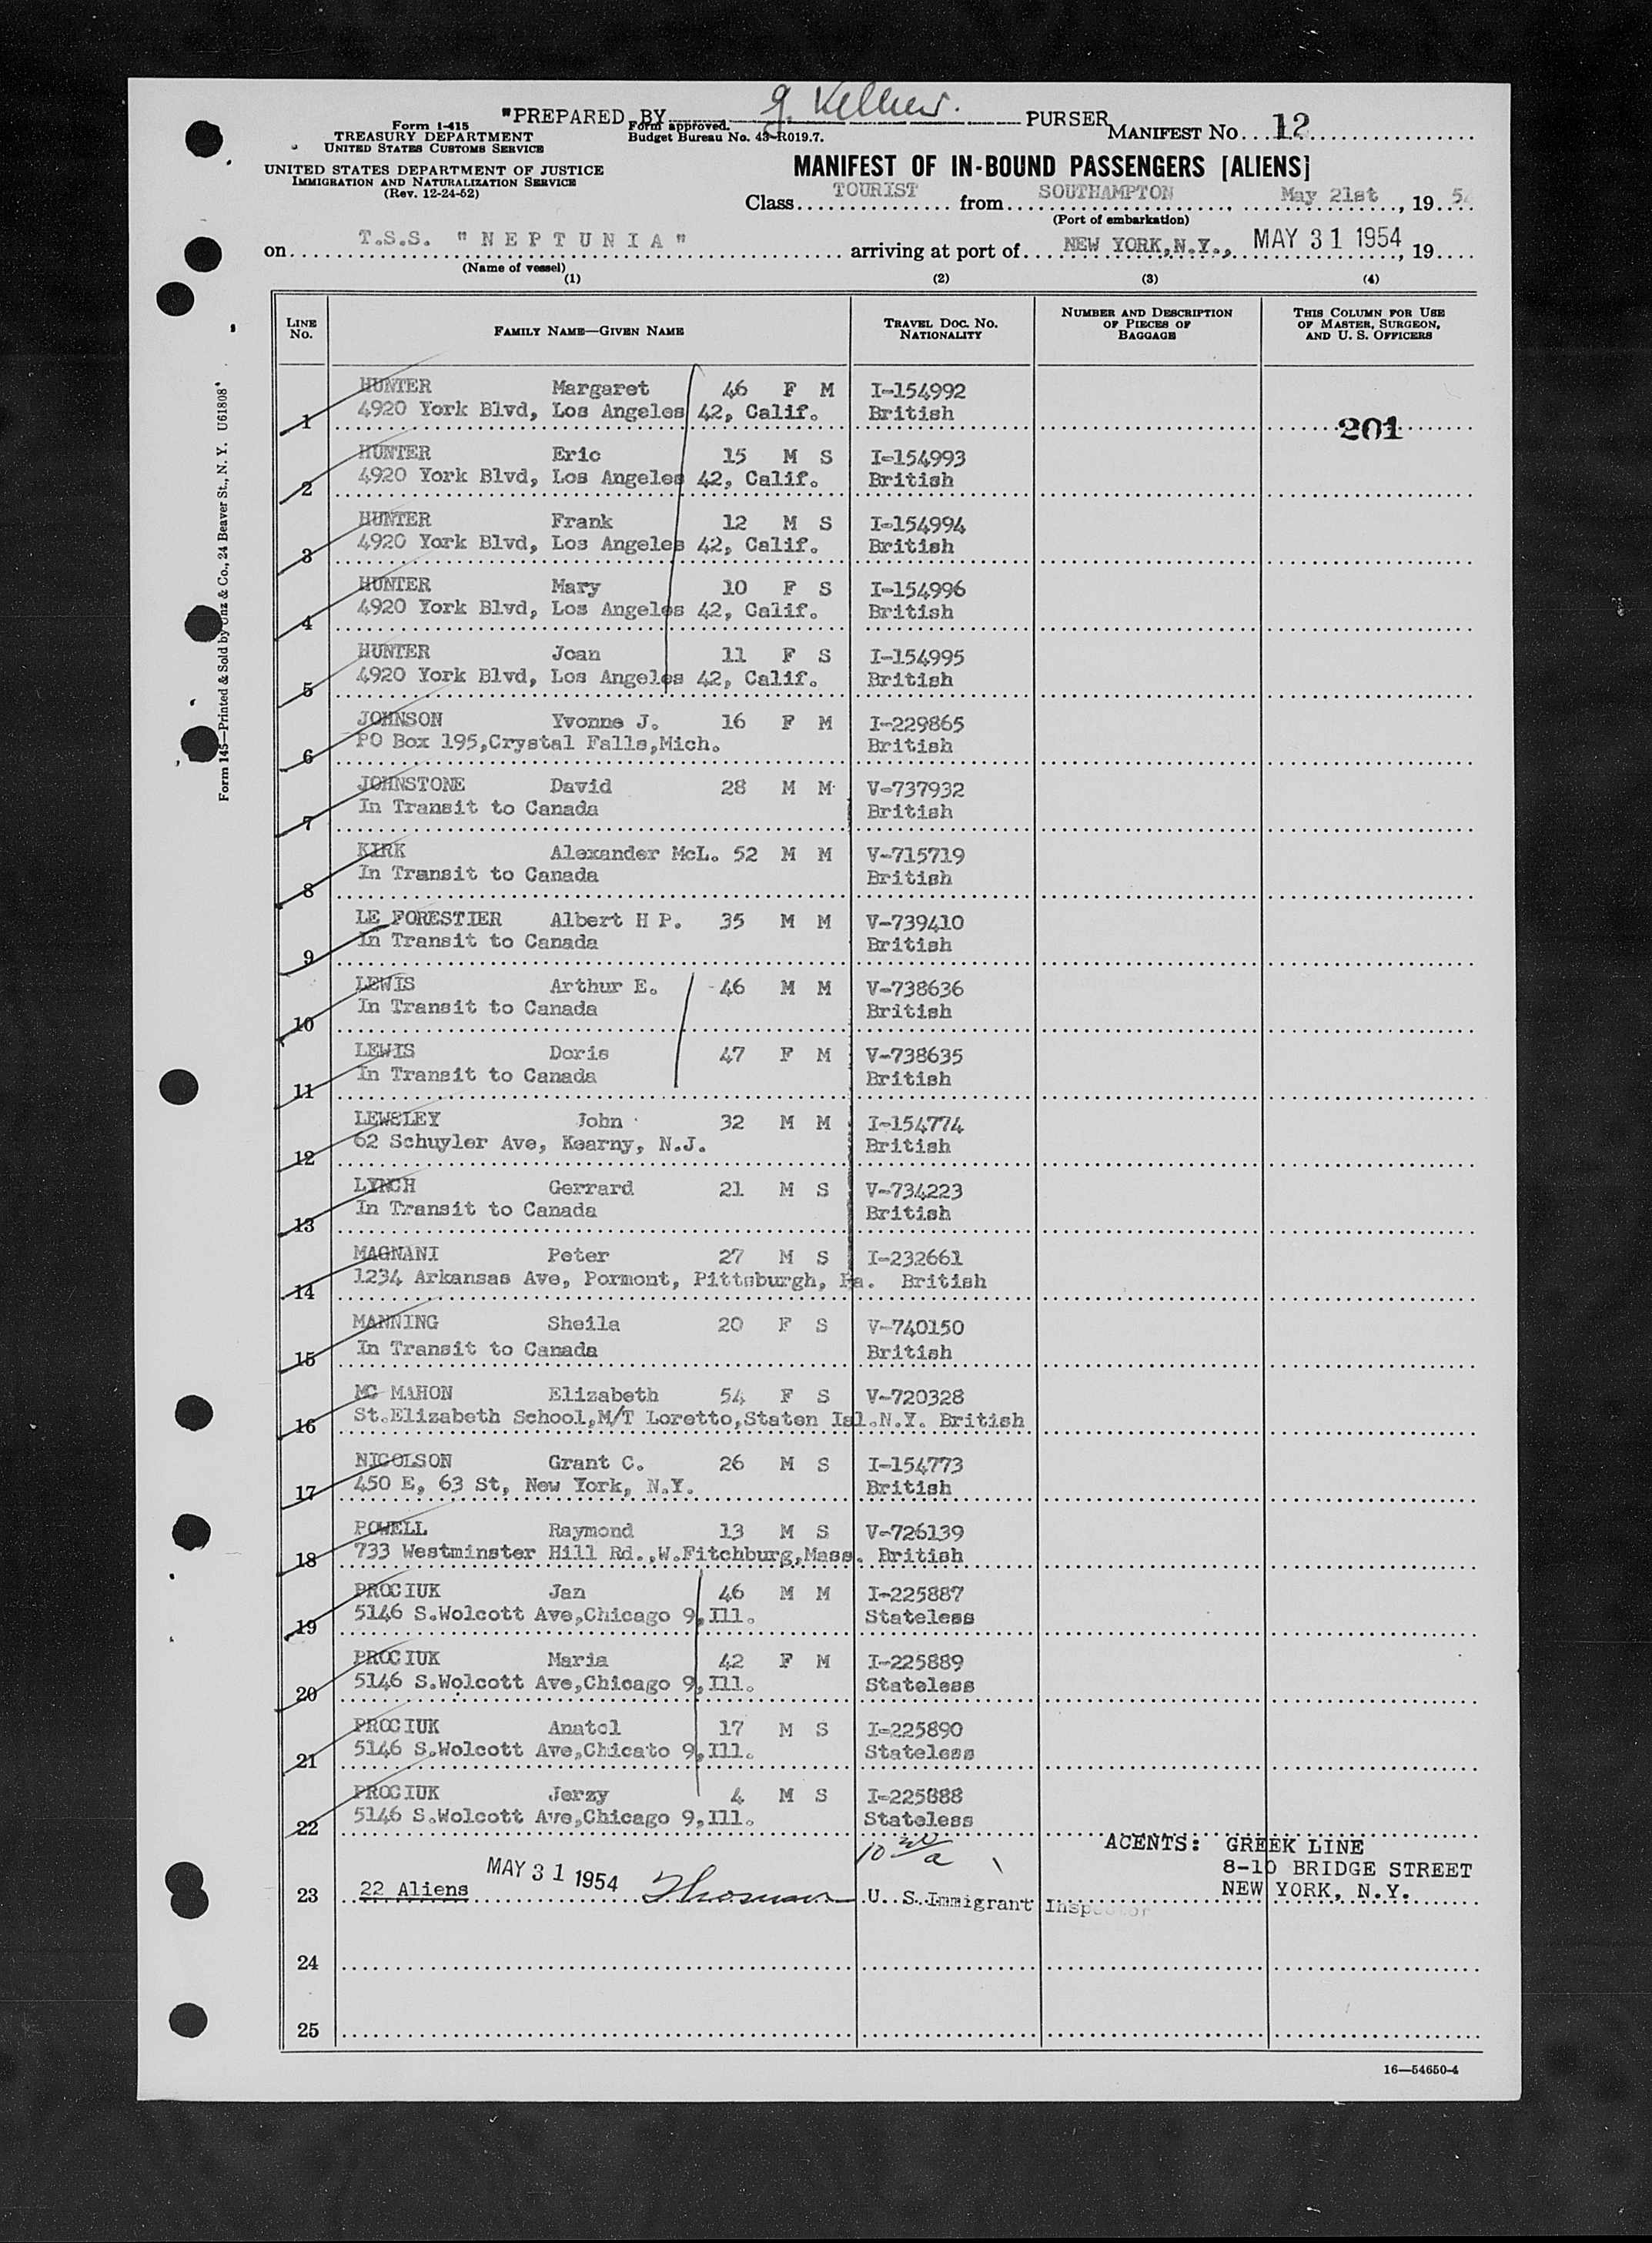 "PREPARED BY PURSER
Form I-415
TREASURY DEPARTMENT
UNITED STATES CUSTOMS SERVICE
Form approved.
Budget Bureau No. 43-R019.7.
MANIFEST NO. 12
UNITED STATES DEPARTMENT OF JUSTICE
IMMIGRATION AND NATURALIZATION SERVICE
(Rev. 12-24-52)
MANIFEST OF IN-BOUND PASSENGERS [ALIENS]
Class TOURIST from SOUTHAMPTON, May 21st, 19 54
(Port of embarkation)
on T.S.S. "NEPTUNIA" arriving at port of NEW YORK, N.Y., MAY 31 1954, 19
(Name of vessel)
(1) (2) (3) (4)
LINE NO. FAMILY NAME—GIVEN NAME TRAVEL DOC. NO. NATIONALITY NUMBER AND DESCRIPTION OF PIECES OF BAGGAGE THIS COLUMN FOR USE OF MASTER, SURGEON, AND U. S. OFFICERS
Form 145—Printed & Sold by Unz & Co., 24 Beaver St., N. Y. U61808
HUNTER Margaret 46 F M I-154992
1 4920 York Blvd, Los Angeles 42, Calif. British 201
HUNTER Eric 15 M S I-154993
2 4920 York Blvd, Los Angeles 42, Calif. British
HUNTER Frank 12 M S I-154994
3 4920 York Blvd, Los Angeles 42, Calif. British
HUNTER Mary 10 F S I-154996
4 4920 York Blvd, Los Angeles 42, Calif. British
HUNTER Joan 11 F S I-154995
5 4920 York Blvd, Los Angeles 42, Calif. British
JOHNSON Yvonne J. 16 F M I-229865
6 PO Box 195,Crystal Falls,Mich. British
JOHNSTONE David 28 M M V-737932
7 In Transit to Canada British
KIRK Alexander McL. 52 M M V-715719
8 In Transit to Canada British
LE FORESTIER Albert H P. 35 M M V-739410
9 In Transit to Canada British
LEWIS Arthur E. 46 M M V-738636
10 In Transit to Canada British
LEWIS Doris 47 F M V-738635
11 In Transit to Canada British
LEWSLEY John 32 M M I-154774
12 62 Schuyler Ave, Kearny, N.J. British
LYNCH Gerrard 21 M S V-734223
13 In Transit to Canada British
MAGNANI Peter 27 M S I-232661
14 1234 Arkansas Ave, Pormont, Pittsburgh, Pa. British
MANNING Sheila 20 F S V-740150
15 In Transit to Canada British
MC MAHON Elizabeth 54 F S V-720328
16 St.Elizabeth School,M/T Loretto,Staten Isl.N.Y. British
NICOLSON Grant C. 26 M S I-154773
17 450 E, 63 St, New York, N.Y. British
POWELL Raymond 13 M S V-726139
18 733 Westminster Hill Rd.,W.Fitchburg,Mass. British
PROCIUK Jan 46 M M I-225887
19 5146 S.Wolcott Ave,Chicago 9,Ill. Stateless
PROCIUK Maria 42 F M I-225889
20 5146 S.Wolcott Ave,Chicago 9,Ill. Stateless
PROCIUK Anatol 17 M S I-225890
21 5146 S.Wolcott Ave,Chicato 9,Ill. Stateless
PROCIUK Jerzy 4 M S I-225888
22 5146 S.Wolcott Ave,Chicago 9,Ill. Stateless
AGENTS: GREEK LINE
8-10 BRIDGE STREET
NEW YORK, N.Y.
23 22 Aliens MAY 31 1954 U. S. Immigrant Inspector
24
25
16—54650-4